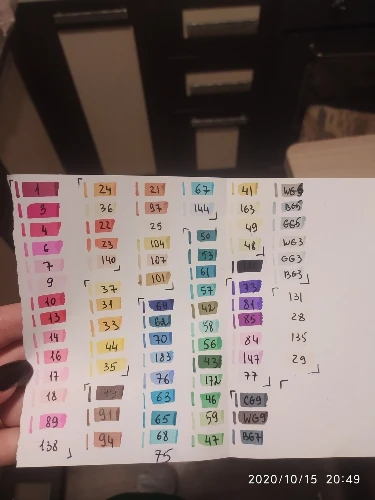 1
3
4
6
7
9
10
13
14
16
17
18
89
138
24
36
22
23
140
37
31
33
44
35
911
94
21
97
25
104
107
101
69
62
70
183
76
63
65
68
75
67
144
50
53
61
57
42
58
56
43
172
46
59
47
41
163
49
48
73
81
85
84
147
77
CG9
WG9
BG7
WG5
BG5
GG5
WG3
GG3
BG3
131
28
135
29
2020/10/15 20:49